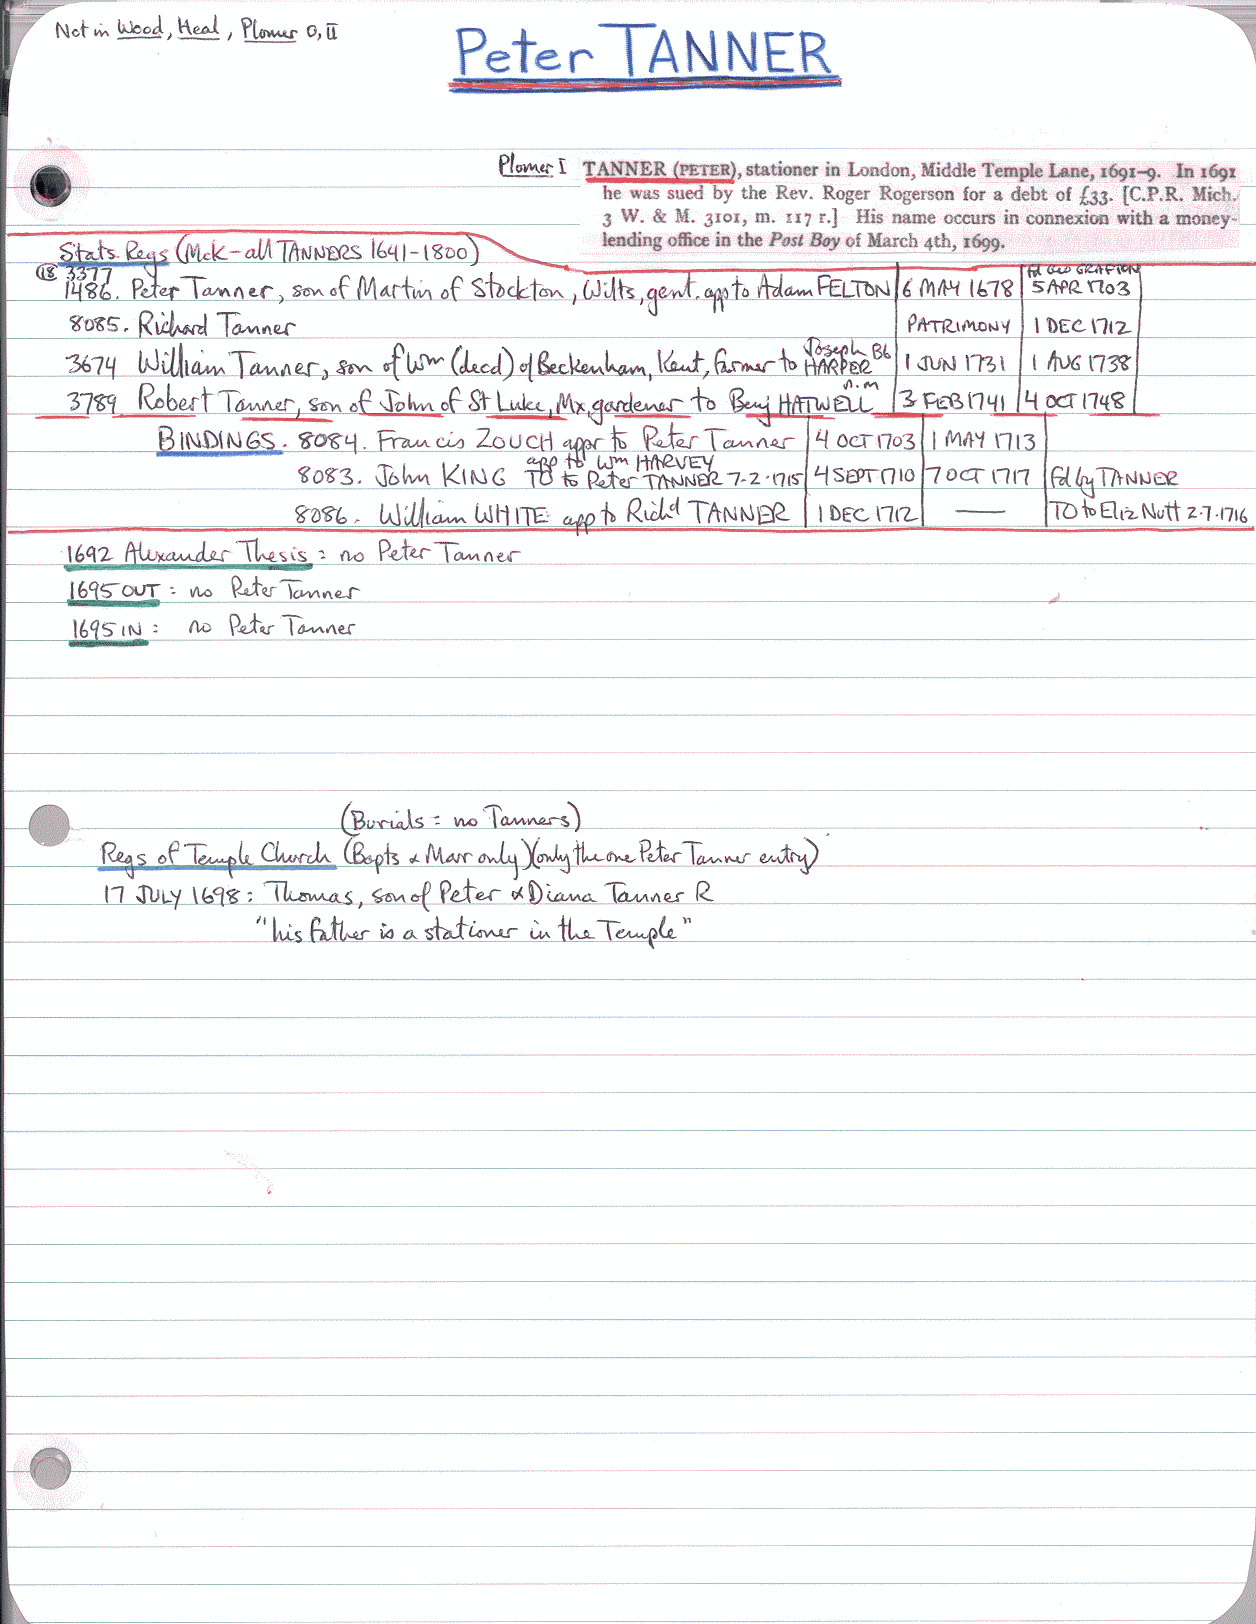 Not in Wood, Heal, Plomer 0, II
Peter TANNER
Plomer I TANNER (PETER), stationer in London, Middle Temple Lane, 1691–9. In 1691
he was sued by the Rev. Roger Rogerson for a debt of £33. [C.P.R. Mich.
3 W. & M. 3101, m. 117 r.] His name occurs in connexion with a money-
lending office in the Post Boy of March 4th, 1699.
Stats. Regs (McK – all TANNERS 1641–1800)
3377 fd GEO GRAFTON
1486. Peter Tanner, son of Martin of Stockton, Wilts, gent. app to Adam FELTON 6 MAY 1678 5 APR 1703
8085. Richard Tanner PATRIMONY 1 DEC 1712
3674 William Tanner, son of Wm (decd) of Beckenham, Kent, farmer to Joseph HARPER 1 JUN 1731 1 AUG 1738
n.m
3789 Robert Tanner, son of John of St Luke, Mx, gardener to Benj HATWELL 3 FEB 1741 4 OCT 1748
BINDINGS. 8084. Francis ZOUCH appr to Peter Tanner 4 OCT 1703 1 MAY 1713
app to Wm HARVEY
8083. John KING TO to Peter TANNER 7-2-1715 4 SEPT 1710 7 OCT 1717 fd by TANNER
8086. William WHITE app to Richd TANNER 1 DEC 1712 — TO to Eliz Nutt 2-7-1716
1692 Alexander Thesis: no Peter Tanner
1695 OUT: no Peter Tanner
1695 IN: no Peter Tanner
(Burials = no Tanners)
Regs of Temple Church (Bapts & Marr only) (only the one Peter Tanner entry)
17 JULY 1698: Thomas, son of Peter & Diana Tanner R
"his father is a stationer in the Temple"